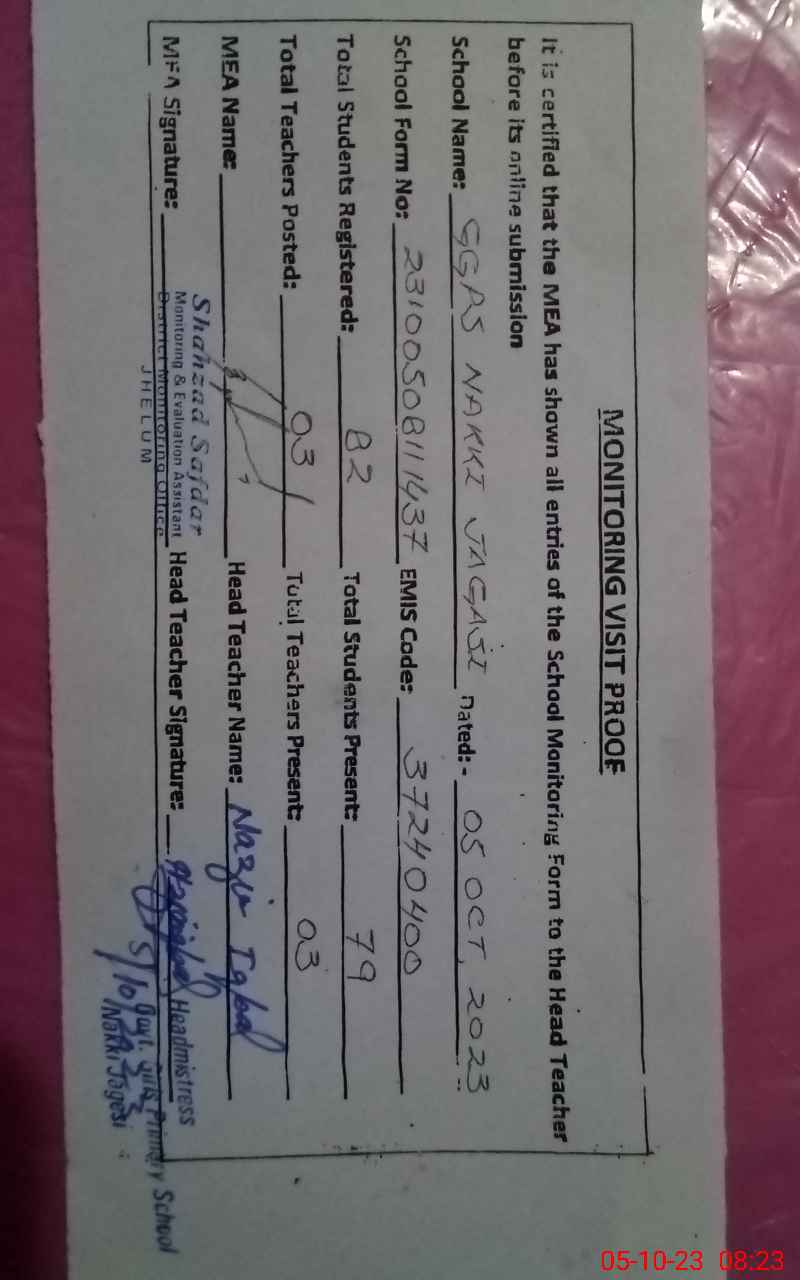 MONITORING VISIT PROOF
It is certified that the MEA has shown all entries of the School Monitoring Form to the Head Teacher
before its online submission
School Name: GGPS NAKKI JAGASI Dated:- 05 OCT, 2023
School Form No: 2310050811437 EMIS Code: 37240400
Total Students Registered: 82 Total Students Present: 79
Total Teachers Posted: 03 Total Teachers Present: 03
MEA Name: Head Teacher Name: Nazia Iqbal
MEA Signature: Head Teacher Signature:
Shahzad Safdar
Monitoring & Evaluation Assistant
District Monitoring Office
JHELUM
Headmistress
Govt. Girls Primary School
Nakki Jagesi
05-10-23 08:23